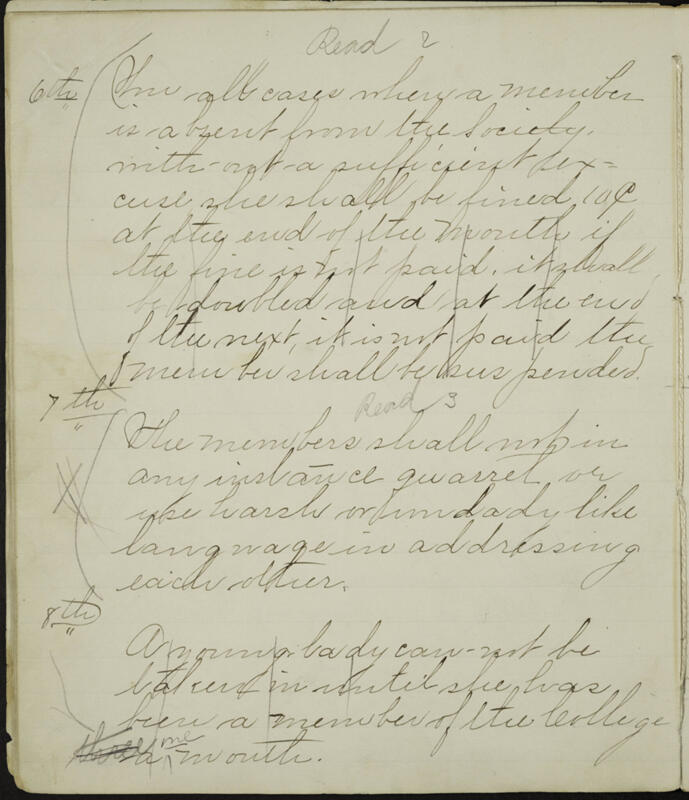 Read 2
6th In all cases when a member
is absent from the Society.
with-out-a sufficient ex=
cuse she shall be fined 10¢
at the end of the month if
the fine is not paid. it shall
be doubled and at the end
of the next, it is not paid the
member shall be suspended.
Read 3
7th
The members shall not in
any instance quarrel or
use harsh or unladylike
language in addressing
each other.
8th
A young lady can-not be
taken in until she has
been a member of the College
three a one month.